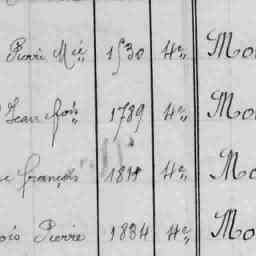 Pierre Mie 1830 4e Mo
Jean fois 1789 4e Mo
françois 1811 4e Mo
ois Pierre 1834 4e Mo